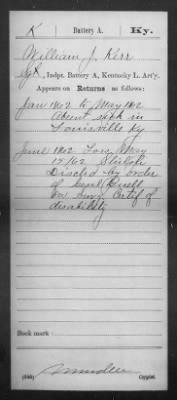 K | Battery A. | Ky.
William J. Kerr
Sgt, Indpt. Battery A, Kentucky L. Art'y.
Appears on Returns as follows:
Jan 1862 to May 1862
Absent sick in
Louisville Ky
June 1862 Loss May
15/62 Shiloh
Discd by order
of Genl Buell
on surg. Certif of
disability
Book mark:
(546)
Copyist.